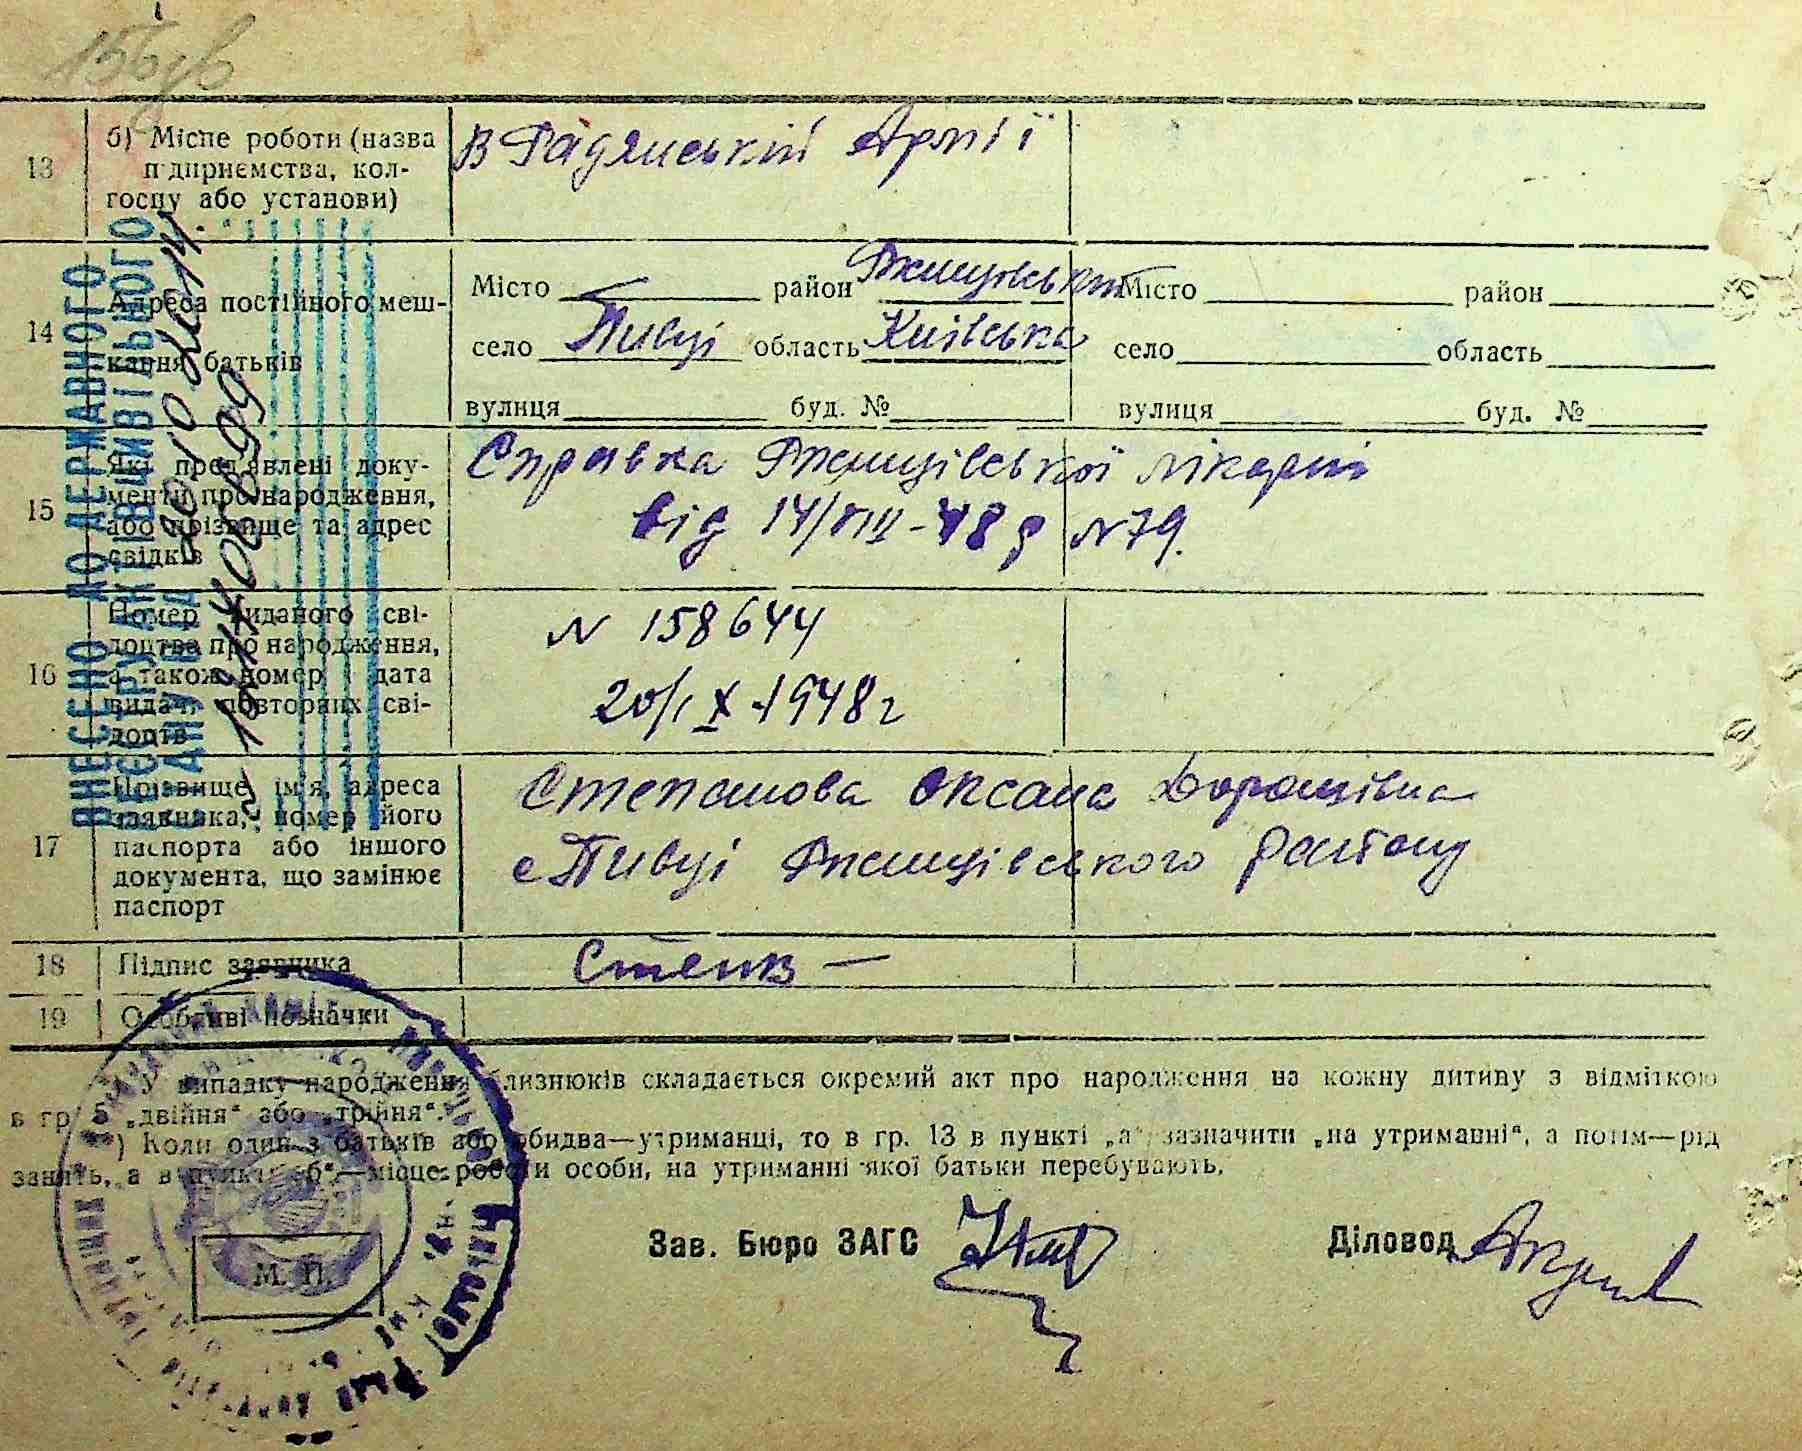 13
б) Місце роботи (назва
підприємства, кол-
госпу або установи)
В Радянській Армії
14
Адреса постійного меш-
кання батьків
Місто район Ржищівський
село Пивці область Київська
вулиця буд. №
Місто район
село область
вулиця буд. №
15
Які пред'явлені доку-
менти про народження,
або прізвище та адрес
свідків
Справка Ржищівської лікарні
від 14/VIII-48 р N 79.
16
Номер виданого сві-
доцтва про народження,
а також номер і дата
видач. повторних сві-
доцтв
N 158644
20/IX-1948 г
17
Прізвище, ім'я, адреса
заявника, номер його
паспорта або іншого
документа, що замінює
паспорт
Степанова Оксана
с Пивці Ржищівського району
18
Підпис заявника
19
Особливі позначки
ВНЕСЕНО ДО ДЕРЖАВНОГО
РЕЄСТРУ АКТІВ ЦИВІЛЬНОГО
СТАНУ
У випадку народження близнюків складається окремий акт про народження на кожну дитину з відміткою
в гр. 5 „двійня“ або „трійня“.
) Коли один з батьків або обидва—утриманці, то в гр. 13 в пункті „а“ зазначити „на утриманні“, а потім—рід
занять, а в пункті „б“—місце роботи особи, на утриманні якої батьки перебувають.
Зав. Бюро ЗАГС
Діловод
М. П.